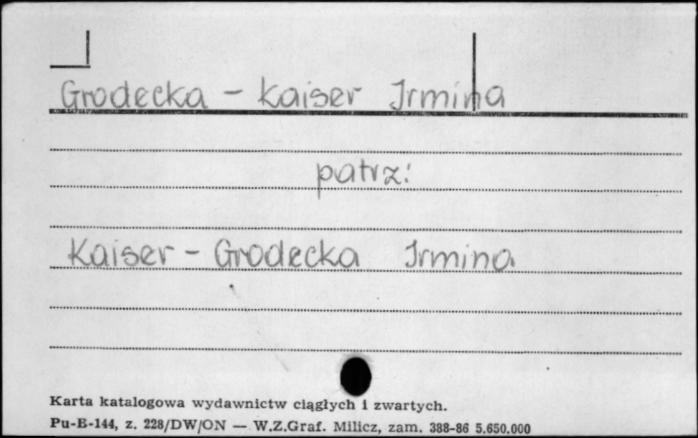 Grodecka - Kaiser Irmina
patrz:
Kaiser - Grodecka Irmina
Karta katalogowa wydawnictw ciągłych i zwartych.
Pu-B-144, z. 228/DW/ON — W.Z.Graf. Milicz, zam. 388-86 5.650.000